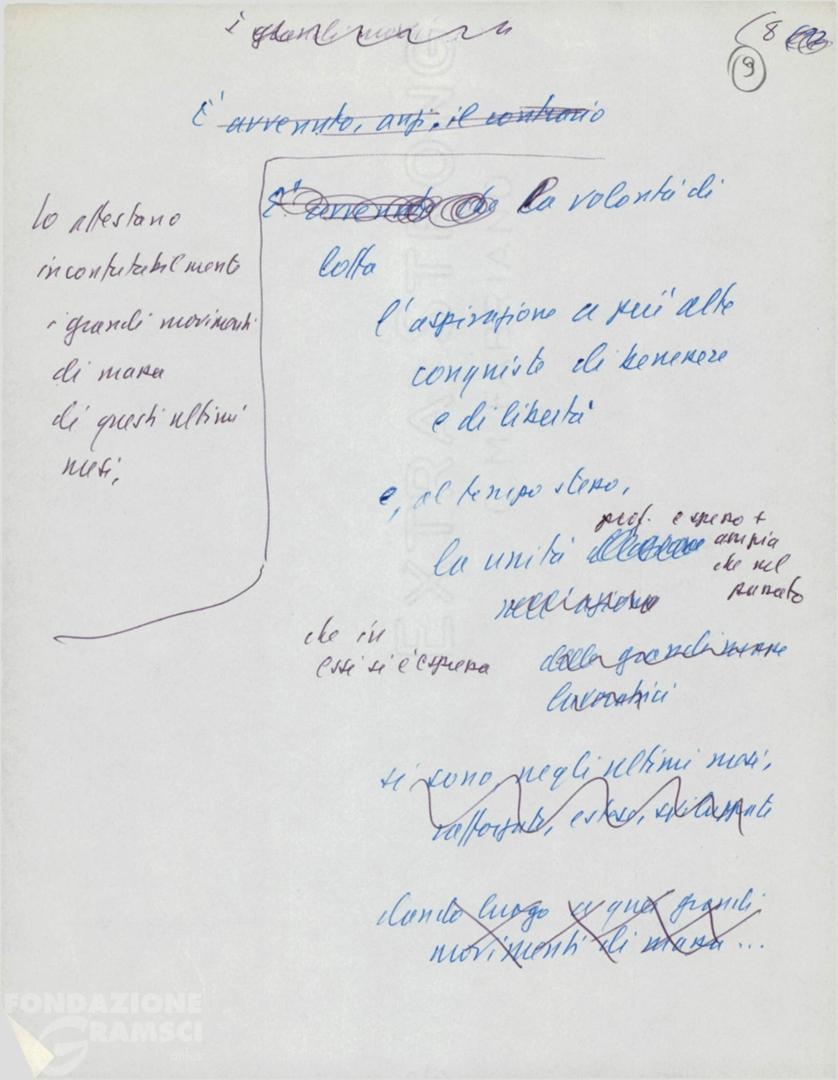 i grandi movi
(8
9
E' avvenuto, anzi, il contrario
E' avvenuto che La volontà di
lotta
l'aspirazione a più alte
conquiste di benessere
e di libertà
e, al tempo stesso,
prof. e spesso +
la unità ampia
che nel
passato
nell'azione
che in
essi si è espressa
delle grandi masse
lavoratrici
si sono, negli ultimi mesi,
rafforzate, estese, sviluppate
dando luogo a quei grandi
movimenti di massa ...
lo attestano
inconfutabilmente
i grandi movimenti
di massa
di questi ultimi
mesi,
EXTRA STRONG
FONDAZIONE
GRAMSCI
onlus